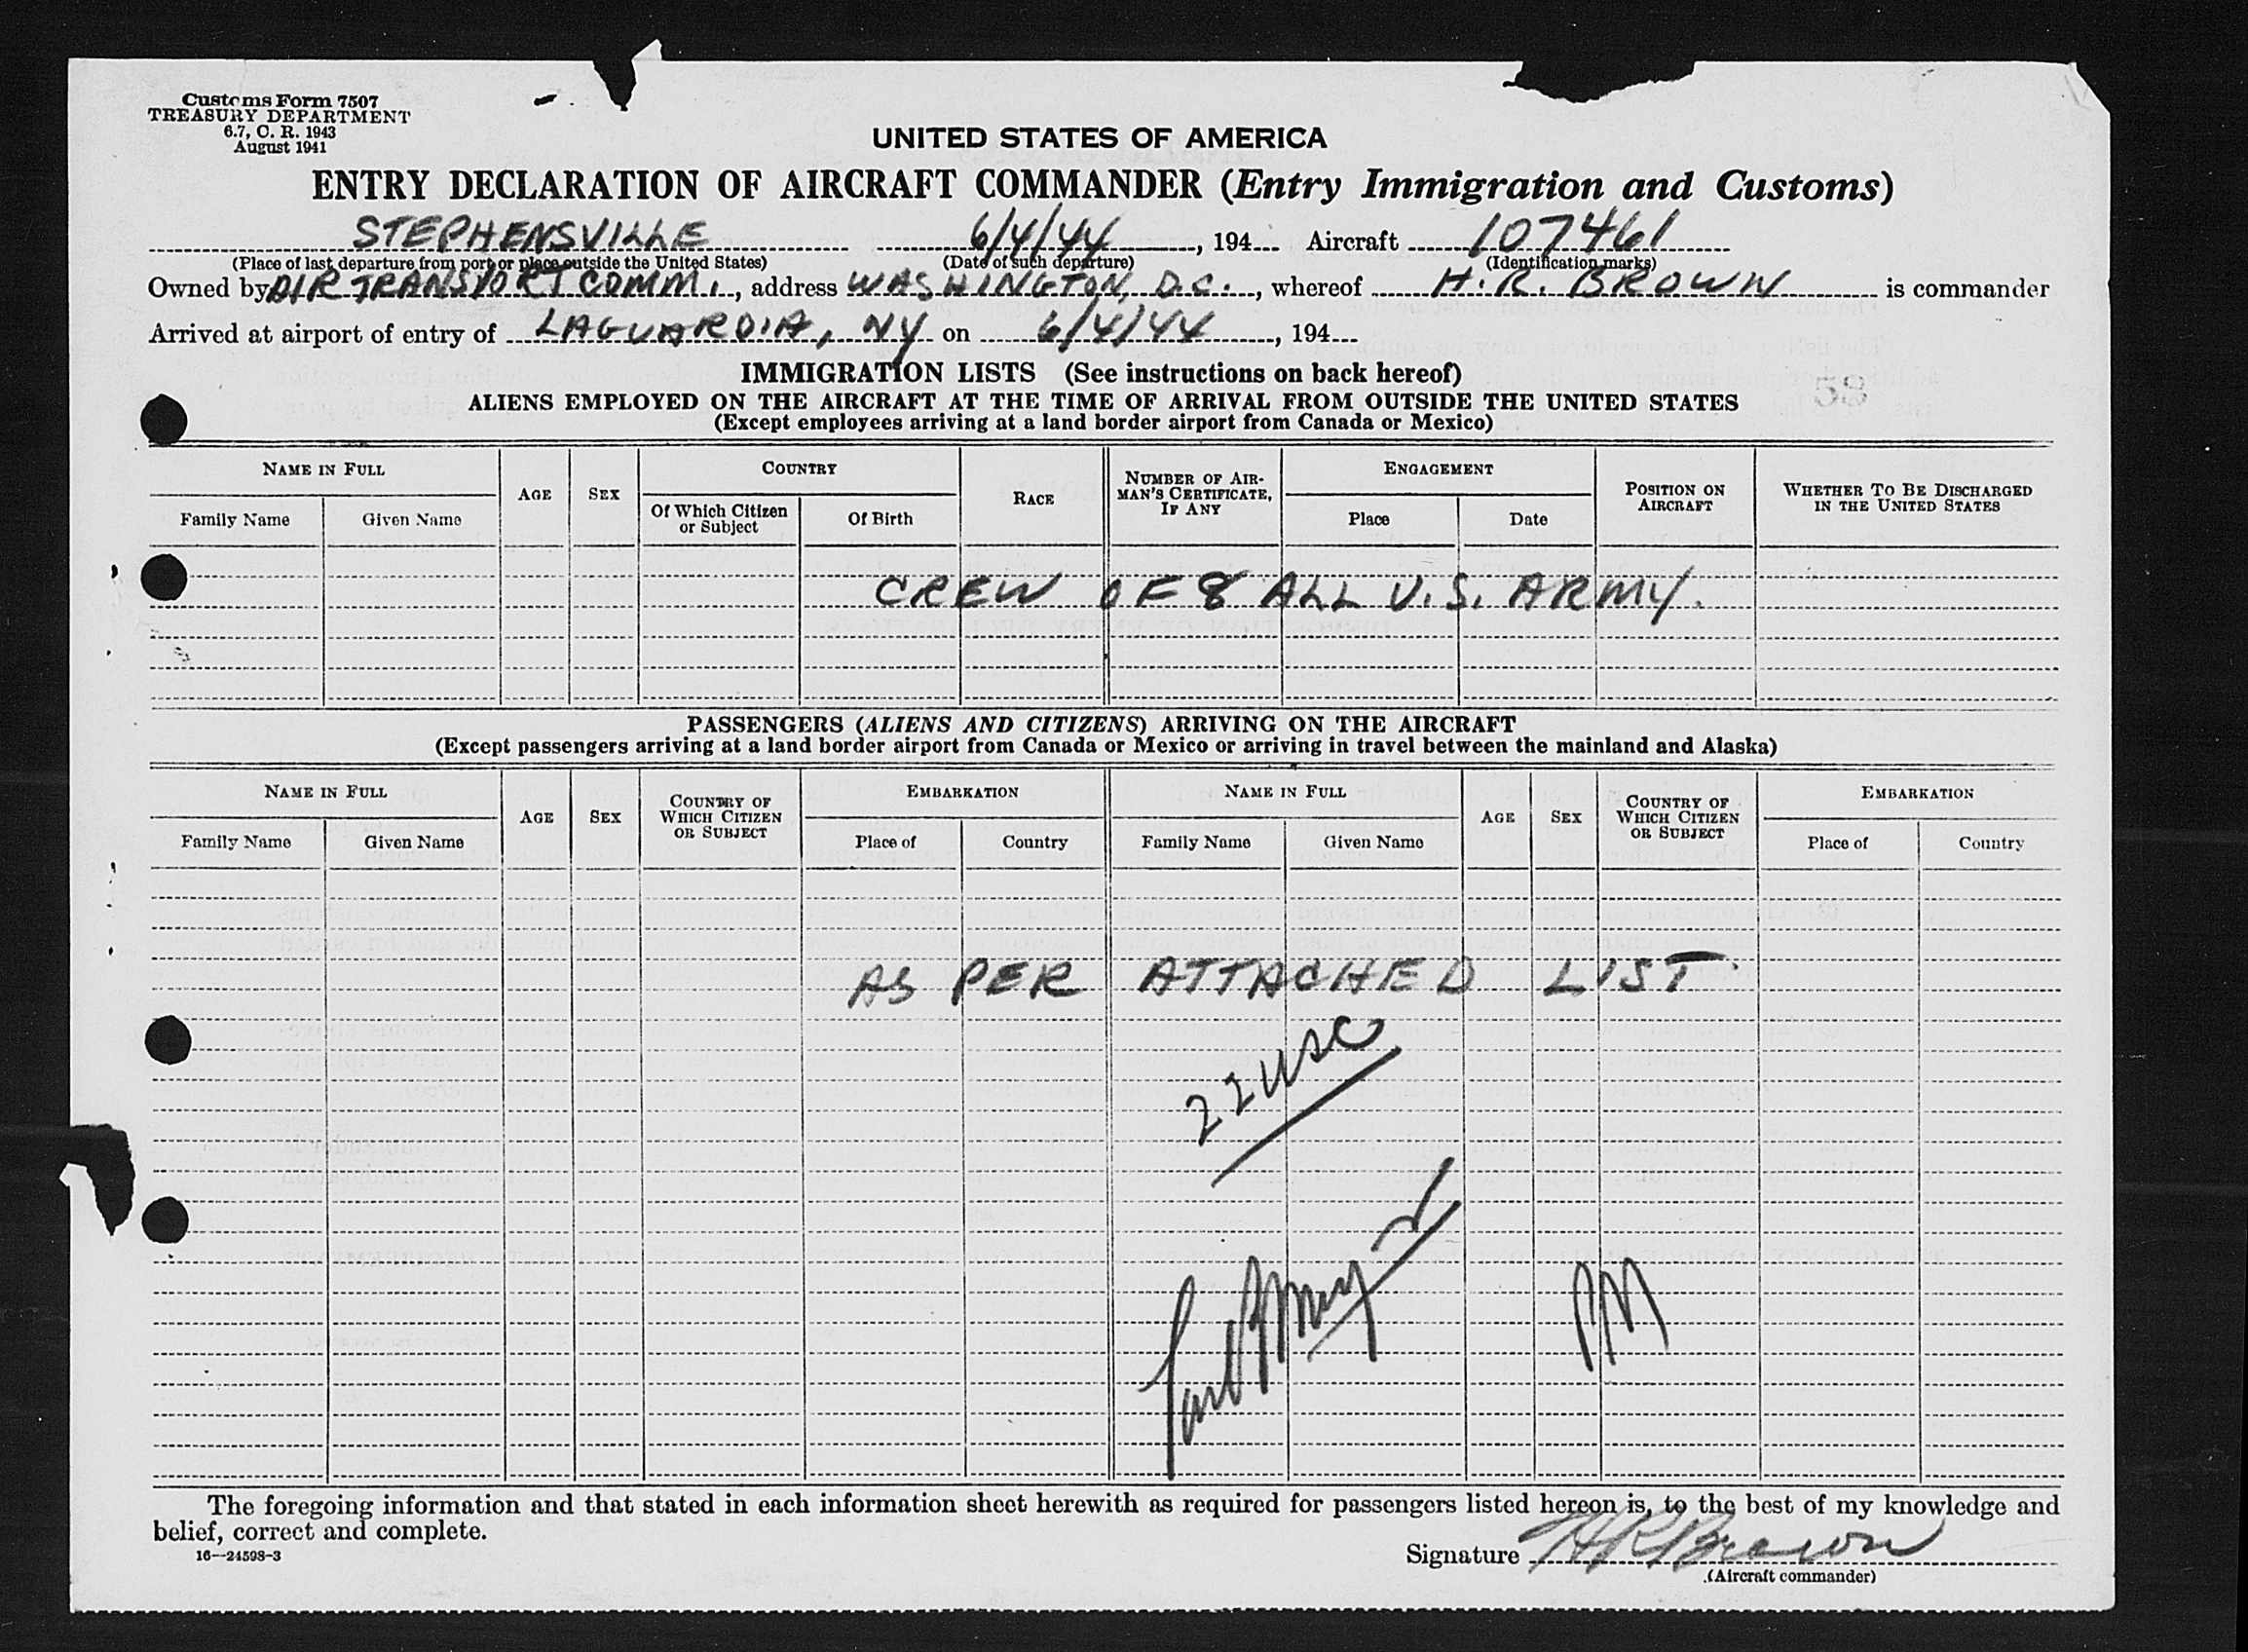 Customs Form 7507
TREASURY DEPARTMENT
6.7, C. R. 1943
August 1941
UNITED STATES OF AMERICA
ENTRY DECLARATION OF AIRCRAFT COMMANDER (Entry Immigration and Customs)
STEPHENSVILLE 6/4/44, 194 Aircraft 107461
(Place of last departure from port or place outside the United States) (Date of such departure) (Identification marks)
Owned by AIR TRANSPORT COMM., address WASHINGTON, D.C., whereof H. R. BROWN is commander
Arrived at airport of entry of LAGUARDIA, NY on 6/4/44, 194
IMMIGRATION LISTS (See instructions on back hereof)
53
ALIENS EMPLOYED ON THE AIRCRAFT AT THE TIME OF ARRIVAL FROM OUTSIDE THE UNITED STATES
(Except employees arriving at a land border airport from Canada or Mexico)
NAME IN FULL AGE SEX COUNTRY RACE NUMBER OF AIRMAN'S CERTIFICATE, IF ANY ENGAGEMENT POSITION ON AIRCRAFT WHETHER TO BE DISCHARGED IN THE UNITED STATES
Family Name Given Name Of Which Citizen or Subject Of Birth Place Date
CREW OF 8 ALL U.S. ARMY.
PASSENGERS (ALIENS AND CITIZENS) ARRIVING ON THE AIRCRAFT
(Except passengers arriving at a land border airport from Canada or Mexico or arriving in travel between the mainland and Alaska)
NAME IN FULL AGE SEX COUNTRY OF WHICH CITIZEN OR SUBJECT EMBARKATION NAME IN FULL AGE SEX COUNTRY OF WHICH CITIZEN OR SUBJECT EMBARKATION
Family Name Given Name Place of Country Family Name Given Name Place of Country
AS PER ATTACHED LIST
22 USC
The foregoing information and that stated in each information sheet herewith as required for passengers listed hereon is, to the best of my knowledge and
belief, correct and complete.
16—24598-3
Signature HRBrown
(Aircraft commander)